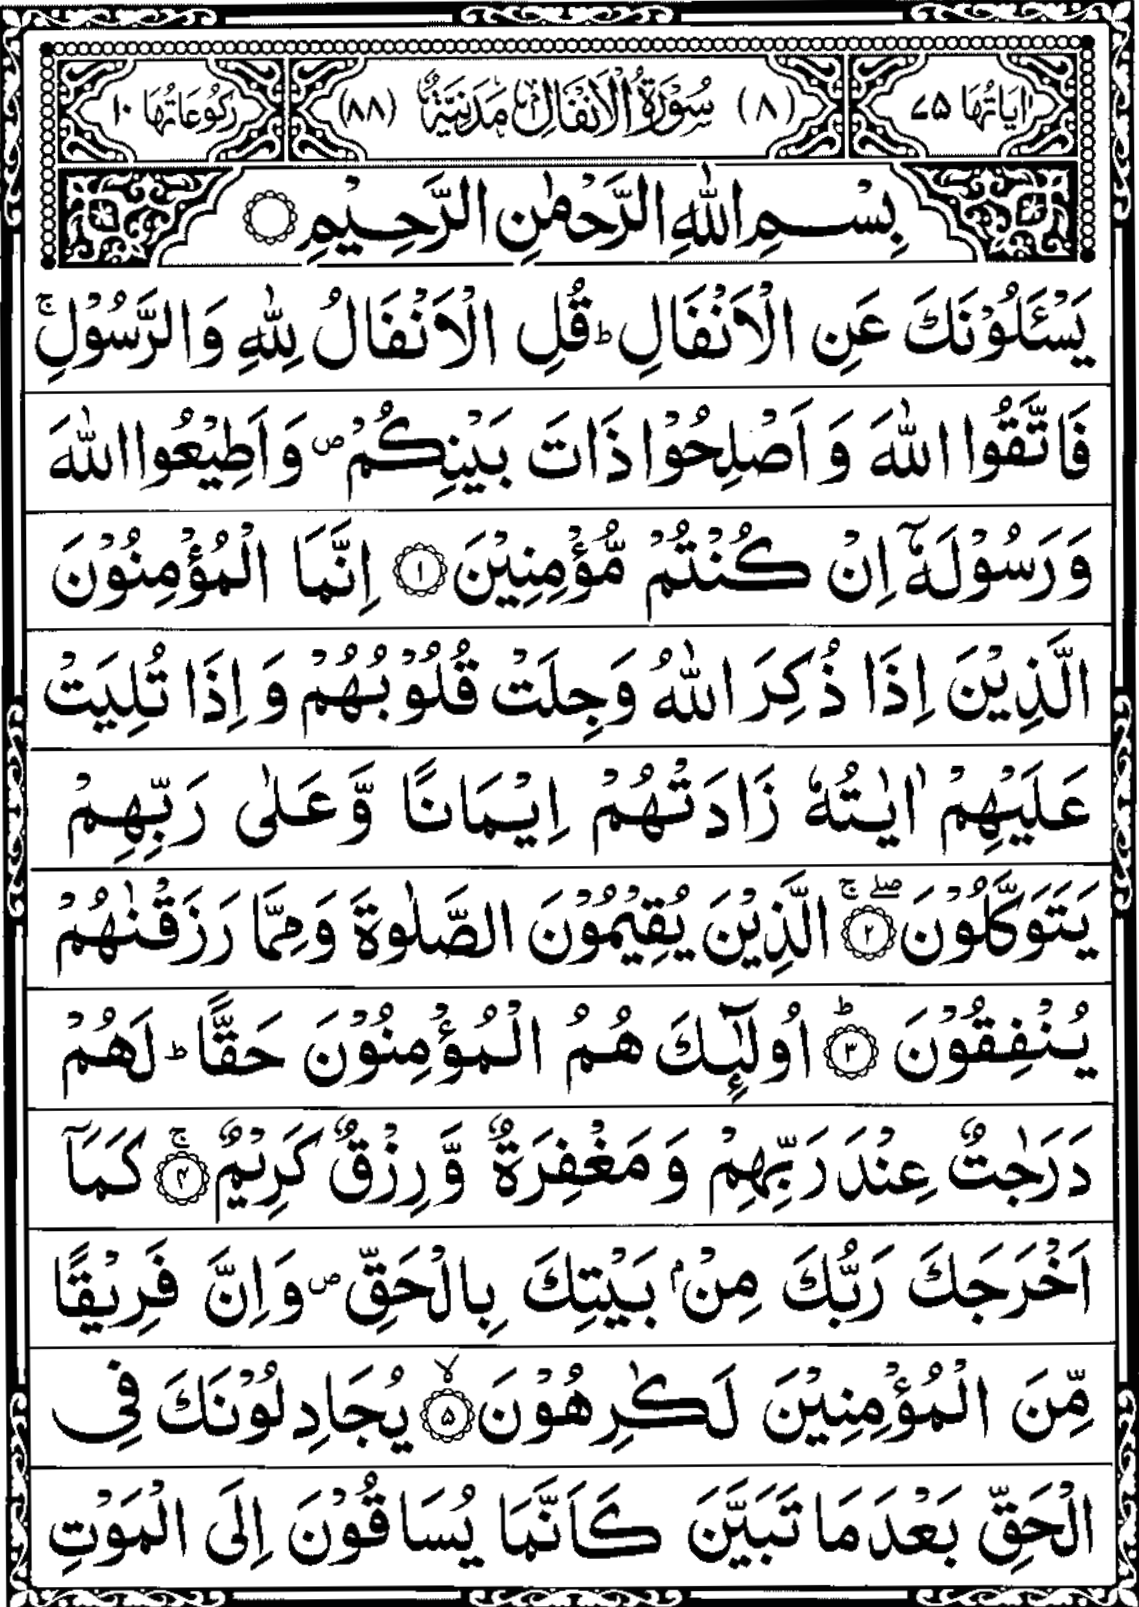 اٰيَاتُهَا ٧٥ (٨) سُوْرَةُ الْاَنْفَالِ مَدَنِيَّةٌ (٨٨) رُكُوْعَاتُهَا ١٠
بِسْمِ اللّٰهِ الرَّحْمٰنِ الرَّحِيْمِ
يَسْـَٔلُوْنَكَ عَنِ الْاَنْفَالِ ؕ قُلِ الْاَنْفَالُ لِلّٰهِ وَالرَّسُوْلِ ۚ
فَاتَّقُوا اللّٰهَ وَ اَصْلِحُوْا ذَاتَ بَيْنِكُمْ ۪ وَاَطِيْعُوا اللّٰهَ
وَرَسُوْلَهٗۤ اِنْ كُنْتُمْ مُّؤْمِنِيْنَ ﴿١﴾ اِنَّمَا الْمُؤْمِنُوْنَ
الَّذِيْنَ اِذَا ذُكِرَ اللّٰهُ وَجِلَتْ قُلُوْبُهُمْ وَ اِذَا تُلِيَتْ
عَلَيْهِمْ اٰيٰتُهٗ زَادَتْهُمْ اِيْمَانًا وَّعَلٰى رَبِّهِمْ
يَتَوَكَّلُوْنَ ۖۚ ﴿٢﴾ الَّذِيْنَ يُقِيْمُوْنَ الصَّلٰوةَ وَمِمَّا رَزَقْنٰهُمْ
يُنْفِقُوْنَ ؕ ﴿٣﴾ اُولٰٓئِكَ هُمُ الْمُؤْمِنُوْنَ حَقًّا ؕ لَهُمْ
دَرَجٰتٌ عِنْدَ رَبِّهِمْ وَ مَغْفِرَةٌ وَّ رِزْقٌ كَرِيْمٌ ۚ ﴿۴﴾ كَمَاۤ
اَخْرَجَكَ رَبُّكَ مِنْۢ بَيْتِكَ بِالْحَقِّ ۪ وَاِنَّ فَرِيْقًا
مِّنَ الْمُؤْمِنِيْنَ لَكٰرِهُوْنَ ۙ ﴿۵﴾ يُجَادِلُوْنَكَ فِى
الْحَقِّ بَعْدَ مَا تَبَيَّنَ كَاَنَّمَا يُسَاقُوْنَ اِلَى الْمَوْتِ